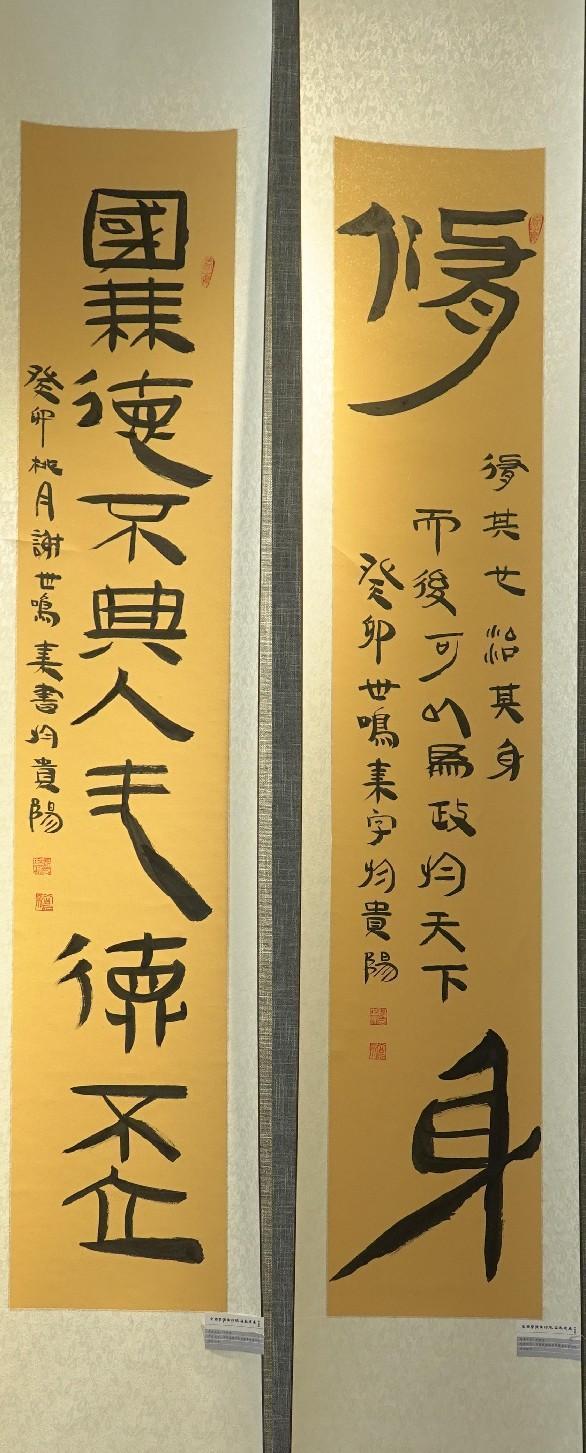 修身
修其心治其身
而後可以為政於天下
癸卯世鳴隶字於貴陽
國無德不興人无德不立
癸卯桃月謝世鳴隶書於貴陽